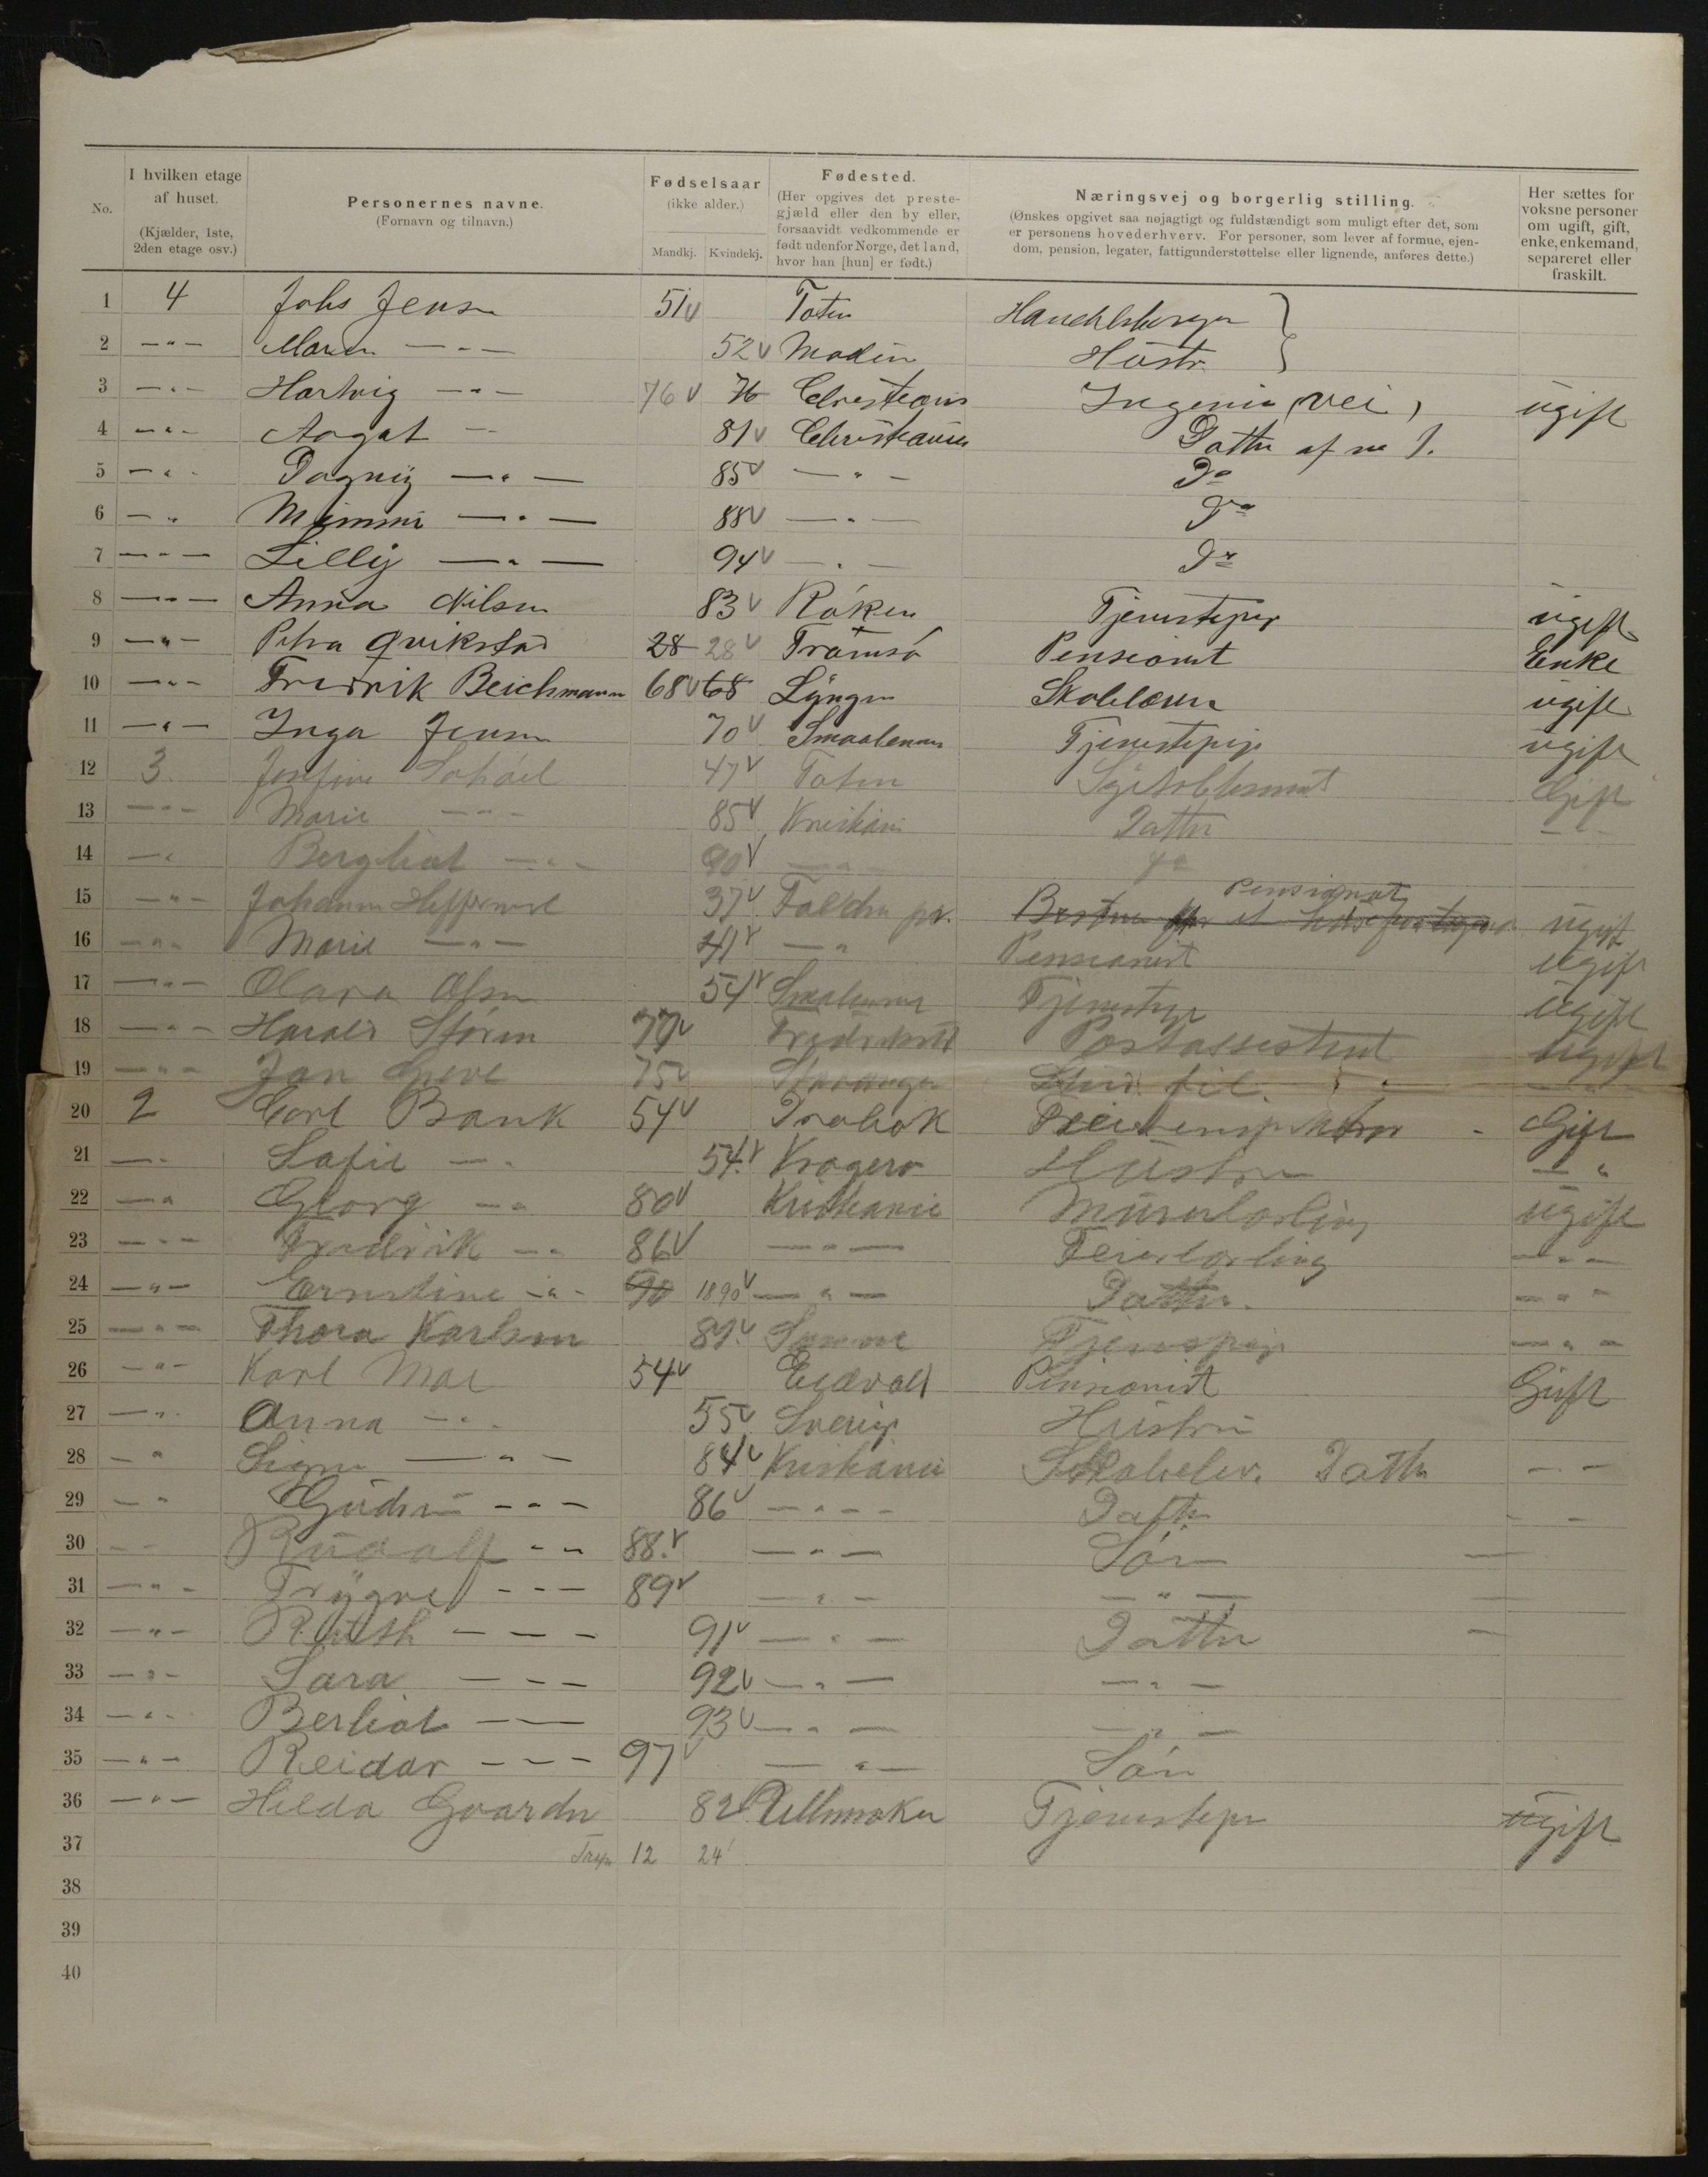 No.
I hvilken etage af huset. (Kjælder, 1ste, 2den etage osv.)
Personernes navne. (Fornavn og tilnavn.)
Fødselsaar (ikke alder.) Mandkj. Kvindekj.
Fødested. (Her opgives det prestegjæld eller den by eller, forsaavidt vedkommende er født udenfor Norge, det land, hvor han [hun] er født.)
Næringsvej og borgerlig stilling. (Ønskes opgivet saa nøjagtigt og fuldstændigt som muligt efter det, som er personens hovederhverv. For personer, som lever af formue, ejendom, pension, legater, fattigunderstøttelse eller lignende, anføres dette.)
Her sættes for voksne personer om ugift, gift, enke, enkemand, separeret eller fraskilt.
1 4 Johs Jensen 51 v Toten Handelsborger }
2 —"— Maren —"— 52 v Modum Hustr }
3 —"— Hartvig —"— 76 v 76 Christiania Ingeniør (vei) ugift
4 —"— Aagat — 81 v Christiania Datter af no 1.
5 —"— Dagny —"— 85 v —"— Do
6 —" Mimmi —"— 88 v —"— Do
7 —"— Lilly —"— 94 v —"— Do
8 —"— Anna Nilsen 83 v Röken Tjenestepige ugift
9 —"— Petra Qvikstad 28 28 v Tromsö Pensionist Enke
10 —"— Fredrik Beichmann 68 v 68 Lyngen Skolelærer ugift
11 —"— Inga Jensen 70 v Smaalenene Tjenestepige ugift
12 3. Josefine 47 v Toten Gift
13 —"— Marie —"— 85 v Kristiania Datter —"—
14 —" Bergliot —"— 90 v —"— Do
15 —"— Johanne 37 v Pensionist ugift
16 —"— Marie —"— 41 v —" Pensionist Ugift
17 —"— Olava Olsen 54 v Smalenene Tjenestepige Ugift
18 —"— Harald Storm 77 v Fredrikstad Postassistent Ugift
19 —"— Jan Greve 75 v Stavanger Stud. fil. —"—
20 2 Carl Bank 54 v Drøbak Feierinspektør - Gift
21 —" Sofie —" 54. v Kragerø Hustru —"
22 —" Georg —" 80 v Kristiania Murerlærling ugift
23 —"— Fredrik —" 86 v —"— Feierlærling —"—
24 —"— Ernstine —"— 90 1890 v —"— Datter. —"—
25 —"— Thora Karlsen 81. v Tjenspige —"—
26 —"— Karl Moe 54 v Eidsvold Pensionist Gift
27 —". Anna —". 55 v Sverige Hustru
28 —" Signe —"— 84 v Kristiania Skoleelev. Datter — —
29 —" Gudrun —"— 86 v —"— Datter — —
30 — — Rudolf —" 88. v —"— Sön —
31 —"— Trygve —"— 89 v —"— —"— —
32 —"— Ruth — — — 91 v —"— Datter —
33 —"— Sara — — — 92 v —"— —"—
34 —"— Berliot — — 93 v —"— —"—
35 —"— Reidar — — — 97 v —"— Sön
36 —"— Hilda 82 v Tjenestepi ugift
37 12 24
38
39
40